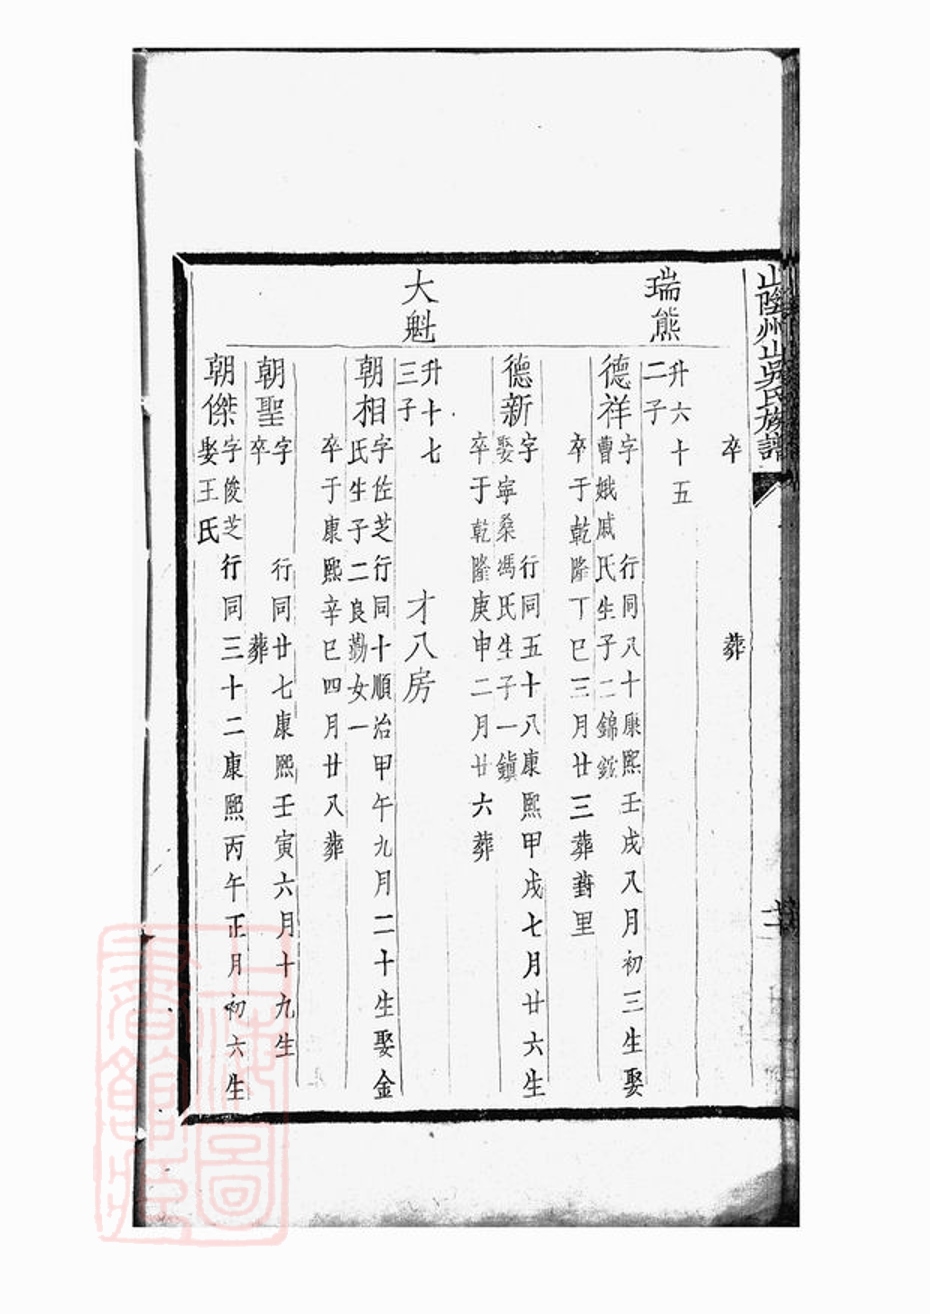 山陰州山吳氏族譜
卒 葬
瑞熊
升六十五
二子
德祥
字 行同八十康熙壬戌八月初三生娶
曹娥戚氏生子二錦
卒于乾隆丁巳三月廿三葬葑里
德新
字 行同五十八康熙甲戌七月廿六生
娶寧桑馮氏生子一鎮
卒于乾隆庚申二月廿六葬
大魁
升十七 才八房
三子
朝相
字佐芝行同十順治甲午九月二十生娶金
氏生子二良勤女一
卒于康熙辛巳四月廿八葬
朝聖
字 行同廿七康熙壬寅六月十九生
卒 葬
朝傑
字俊芝行同三十二康熙丙午正月初六生
娶王氏
上海圖書館藏